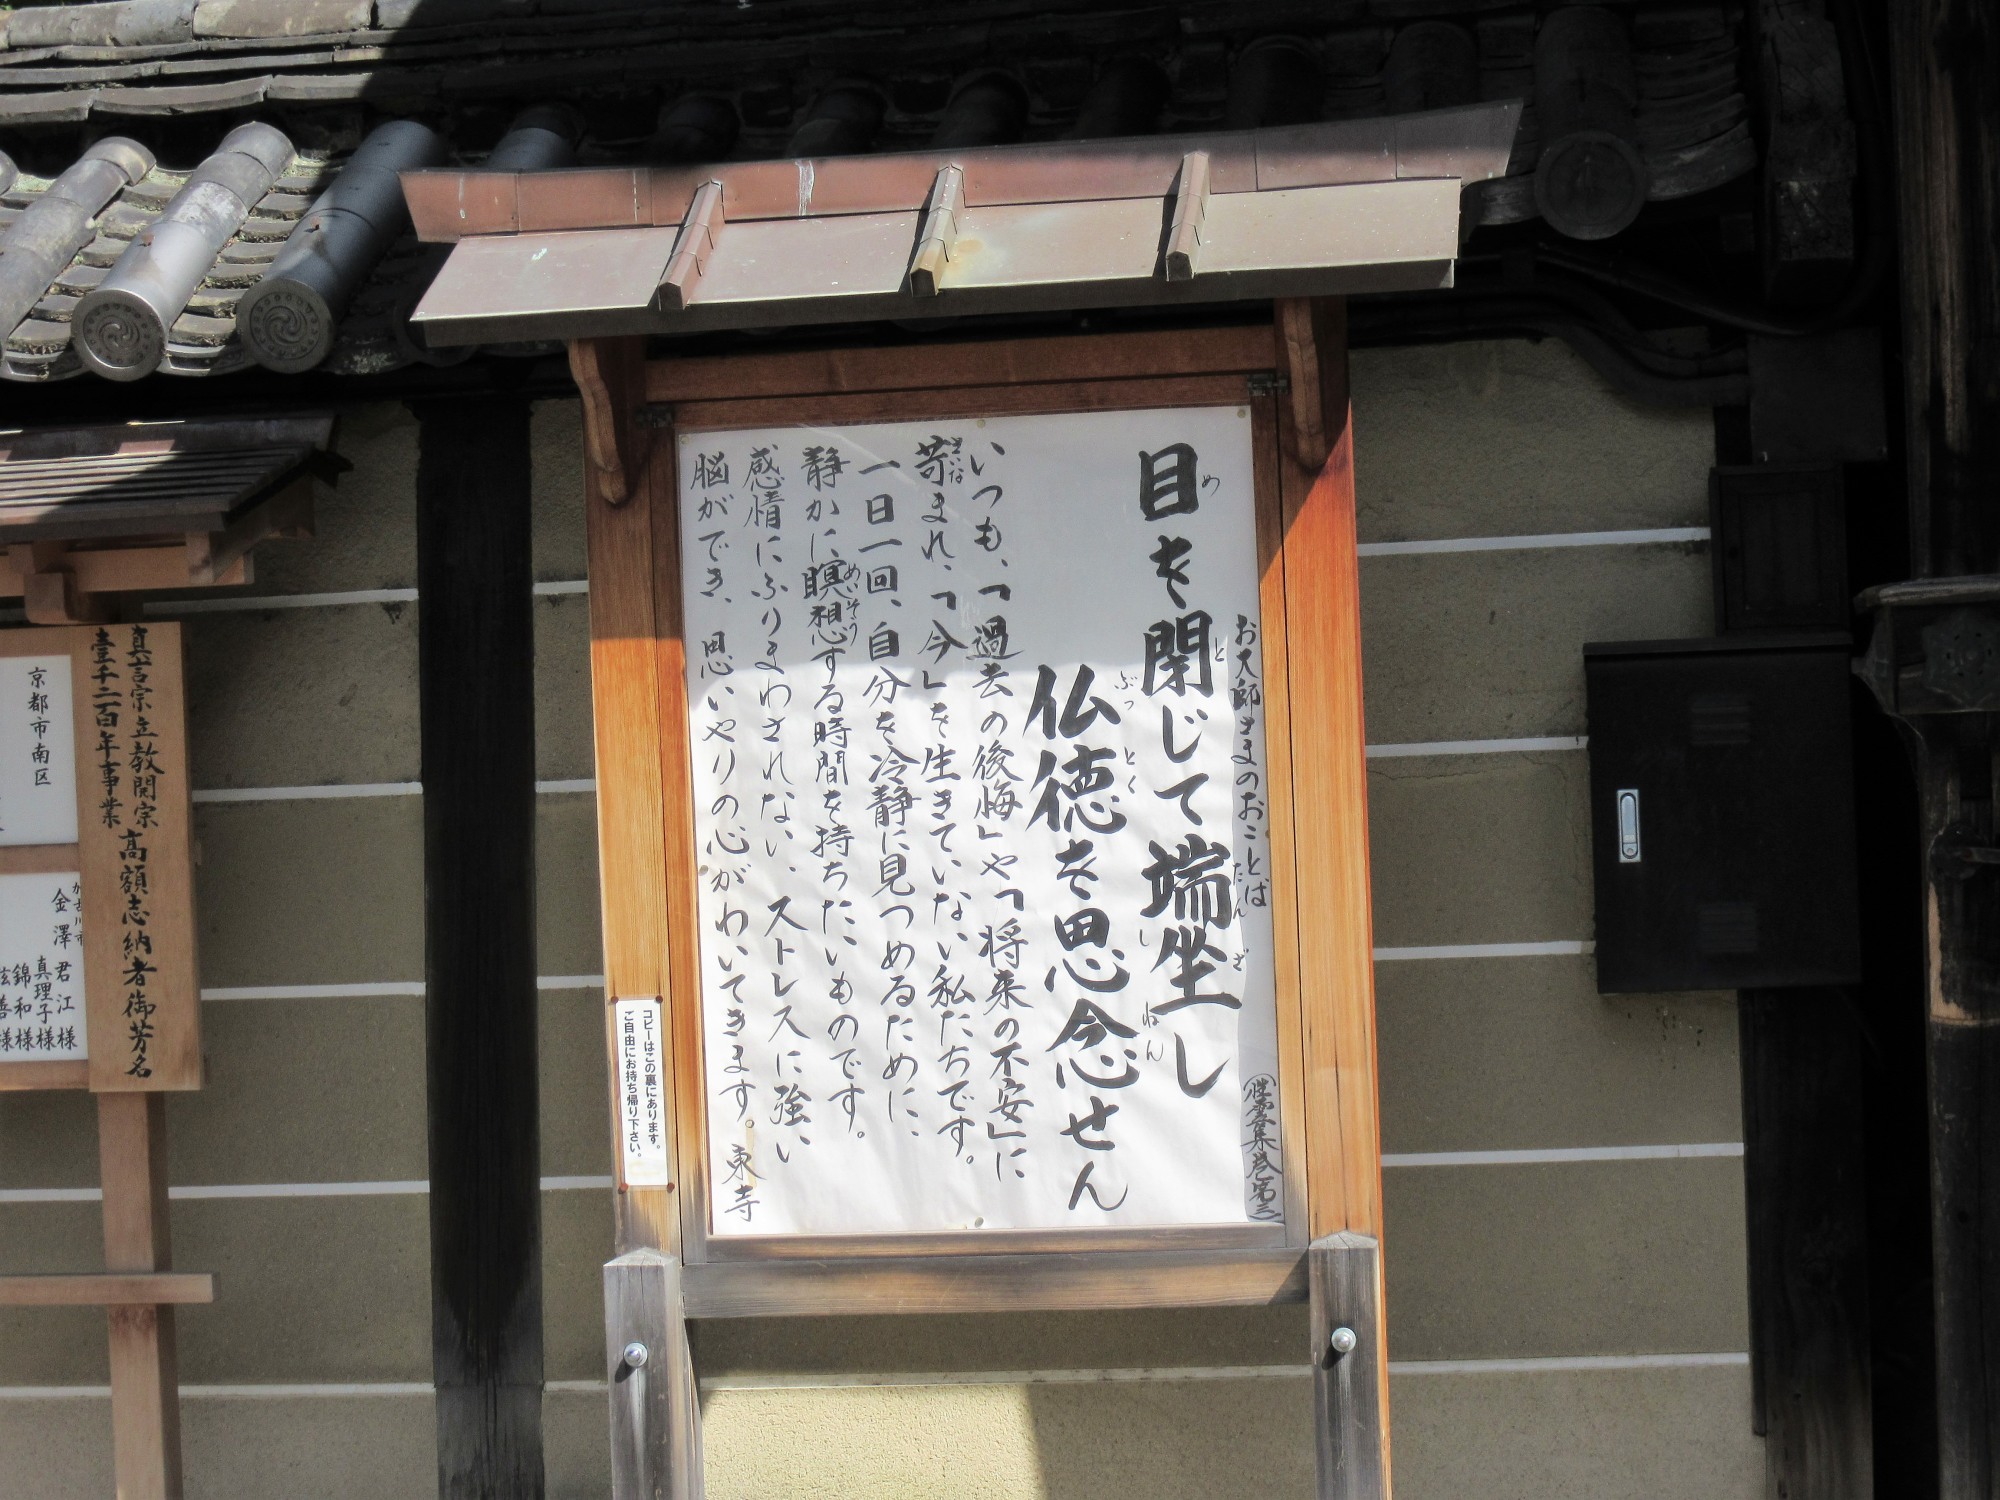 お大師さまのおことば
(性霊集巻第三)
目を閉じて端坐し
め と たん ざ
仏徳を思念せん
ぶっ とく し ねん
いつも、「過去の後悔」や「将来の不安」に
苛まれ、「今」を生きていない私たちです。
さいな
一日一回、自分を冷静に見つめるために、
静かに瞑想する時間を持ちたいものです。
めいそう
感情にふりまわされない、ストレスに強い
脳ができ、思いやりの心がわいてきます。東寺
コピーはこの裏にあります。
ご自由にお持ち帰り下さい。
真言宗立教開宗
壹千二百年事業
高額志納者御芳名
京都市南区
加古川市
金澤 君江様
真理子様
錦和様
善様